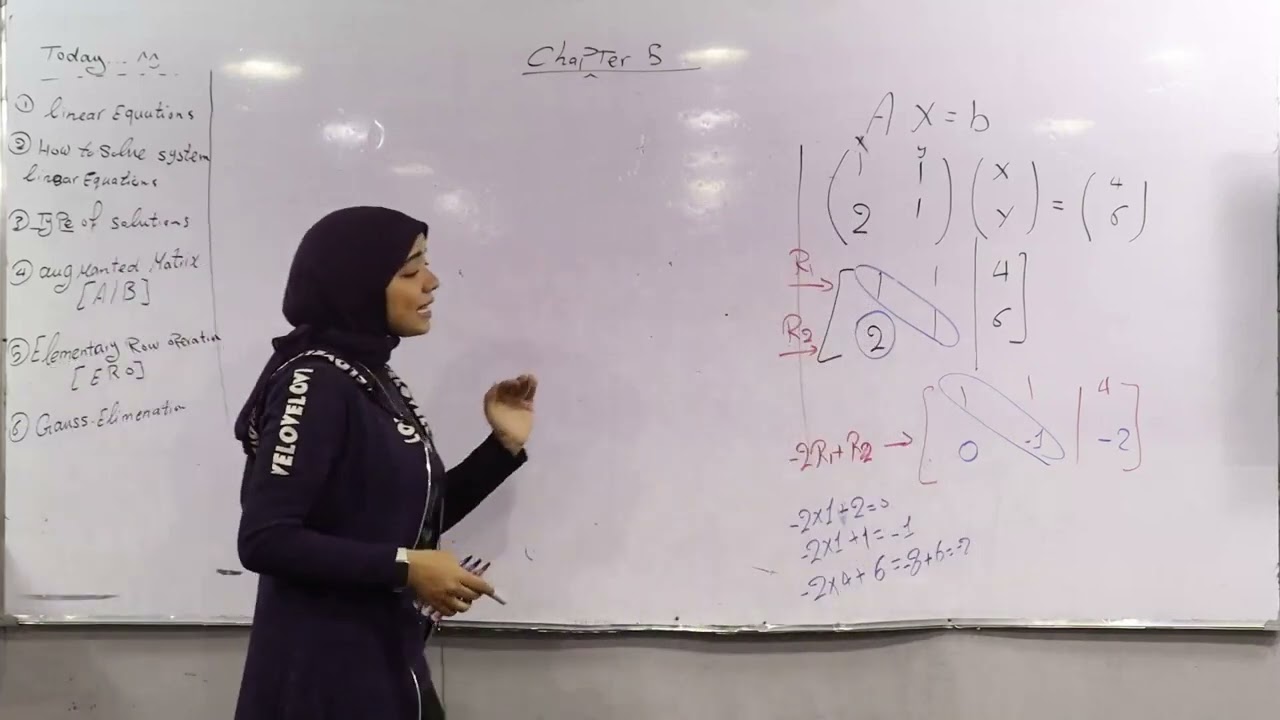 Today... ^^
Chapter 5
① linear Equations
② How to Solve system
linear Equations
③ Type of solutions
④ augmanted Matrix
[A/B]
⑤ Elementary Row operation
[ERO]
⑥ Gauss-Elimenation
A X = b
x y
1 1 x 4
2 1 y = 6
R1 → 1 1 | 4
R2 → 2 1 | 6
1 1 | 4
-2R1+R2 → 0 -1 | -2
-2x1+2=0
-2x1+1=-1
-2x4+6=-8+6=-2
VELOVELOVI